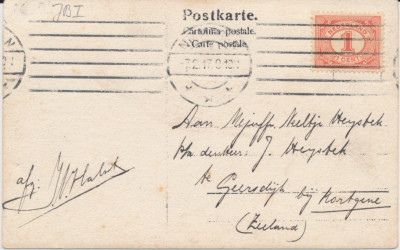 JBI
Postkarte.
Cartolina postale.
Carte postale.
1
CENT
Aan Mejuffr. Neeltje Heijstek
p/a den Heer J. Heijstek
te Geersdijk bij Kortgene
(Zeeland)
afz.